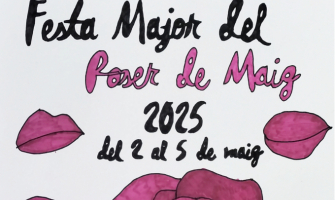 Festa Major del
Roser de Maig
2025
del 2 al 5 de maig